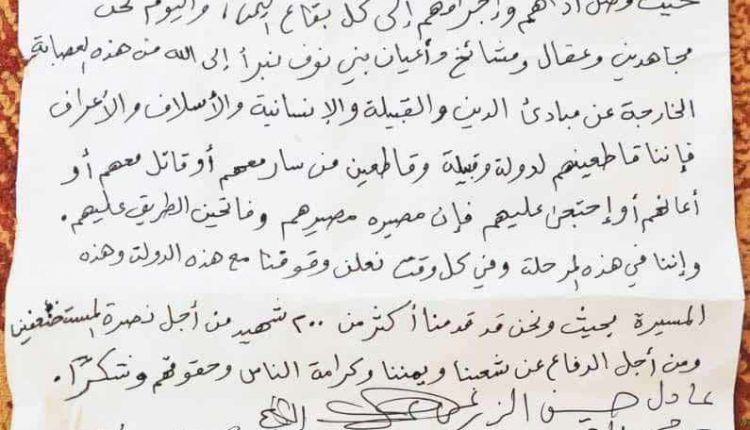 حيث وصل أذاهم وإجرامهم إلى كل بقاع اليمن، واليوم نحن
مجاهدين وعقال ومشائخ وأعيان بني نوف نبرأ إلى الله من هذه العصابة
الخارجة عن مبادئ الدين والقبيلة والإنسانية والأسلاف والأعراف
فإننا قاطعينهم لدولة وقبيلة وقاطعين من سار معهم أو قاتل معهم أو
أعانهم أو إحتجى عليهم فإن مصيره مصيرهم وفاتحين الطريق عليهم.
وإننا في هذه المرحلة وفي كل وقت نعلن وقوفنا مع هذه الدولة وهذه
المسيرة بحيث ونحن قد قدمنا أكثر من ٢٠٠ شهيد من أجل نصرة المستضعفين
ومن أجل الدفاع عن شعبنا ويمننا وكرامة الناس وحقوقهم وشكرًا.
عادل حسين